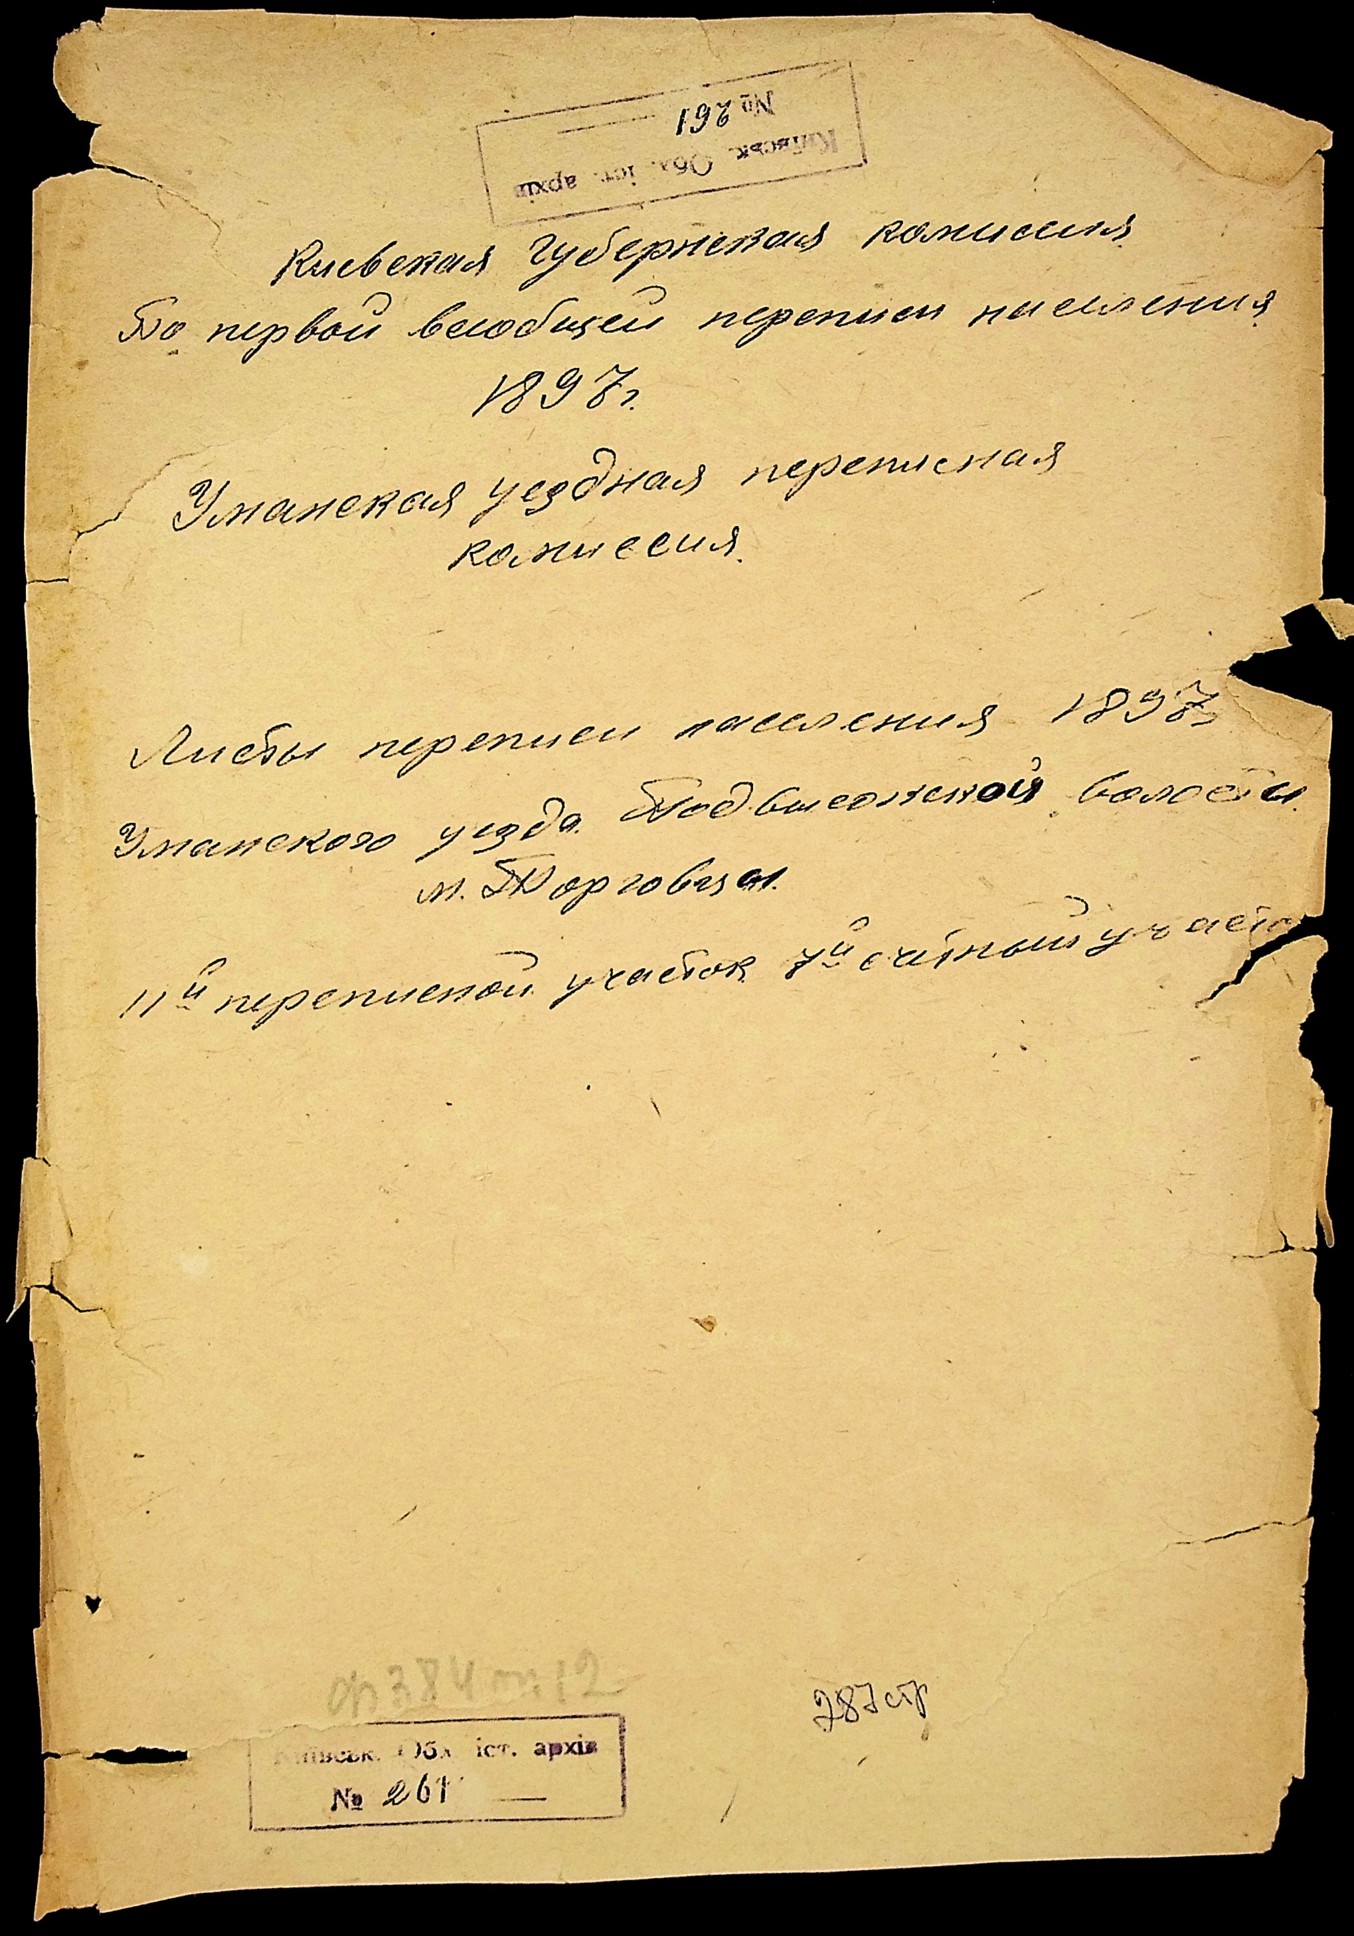 № 261
Київськ. Обл. іст. архів
Киевская Губернская комиссия
По первой всеобщей переписи населения
1897 г.
Уманская уездная переписная
комиссия.
Листы переписи населения 1897 г.
Уманского уезда Подвысоцкой волости
м. Торговицы.
11й переписной участок 7й счётный участо
ф 384 оп 12
287 стр
Київськ. Обл. іст. архів
№ 261